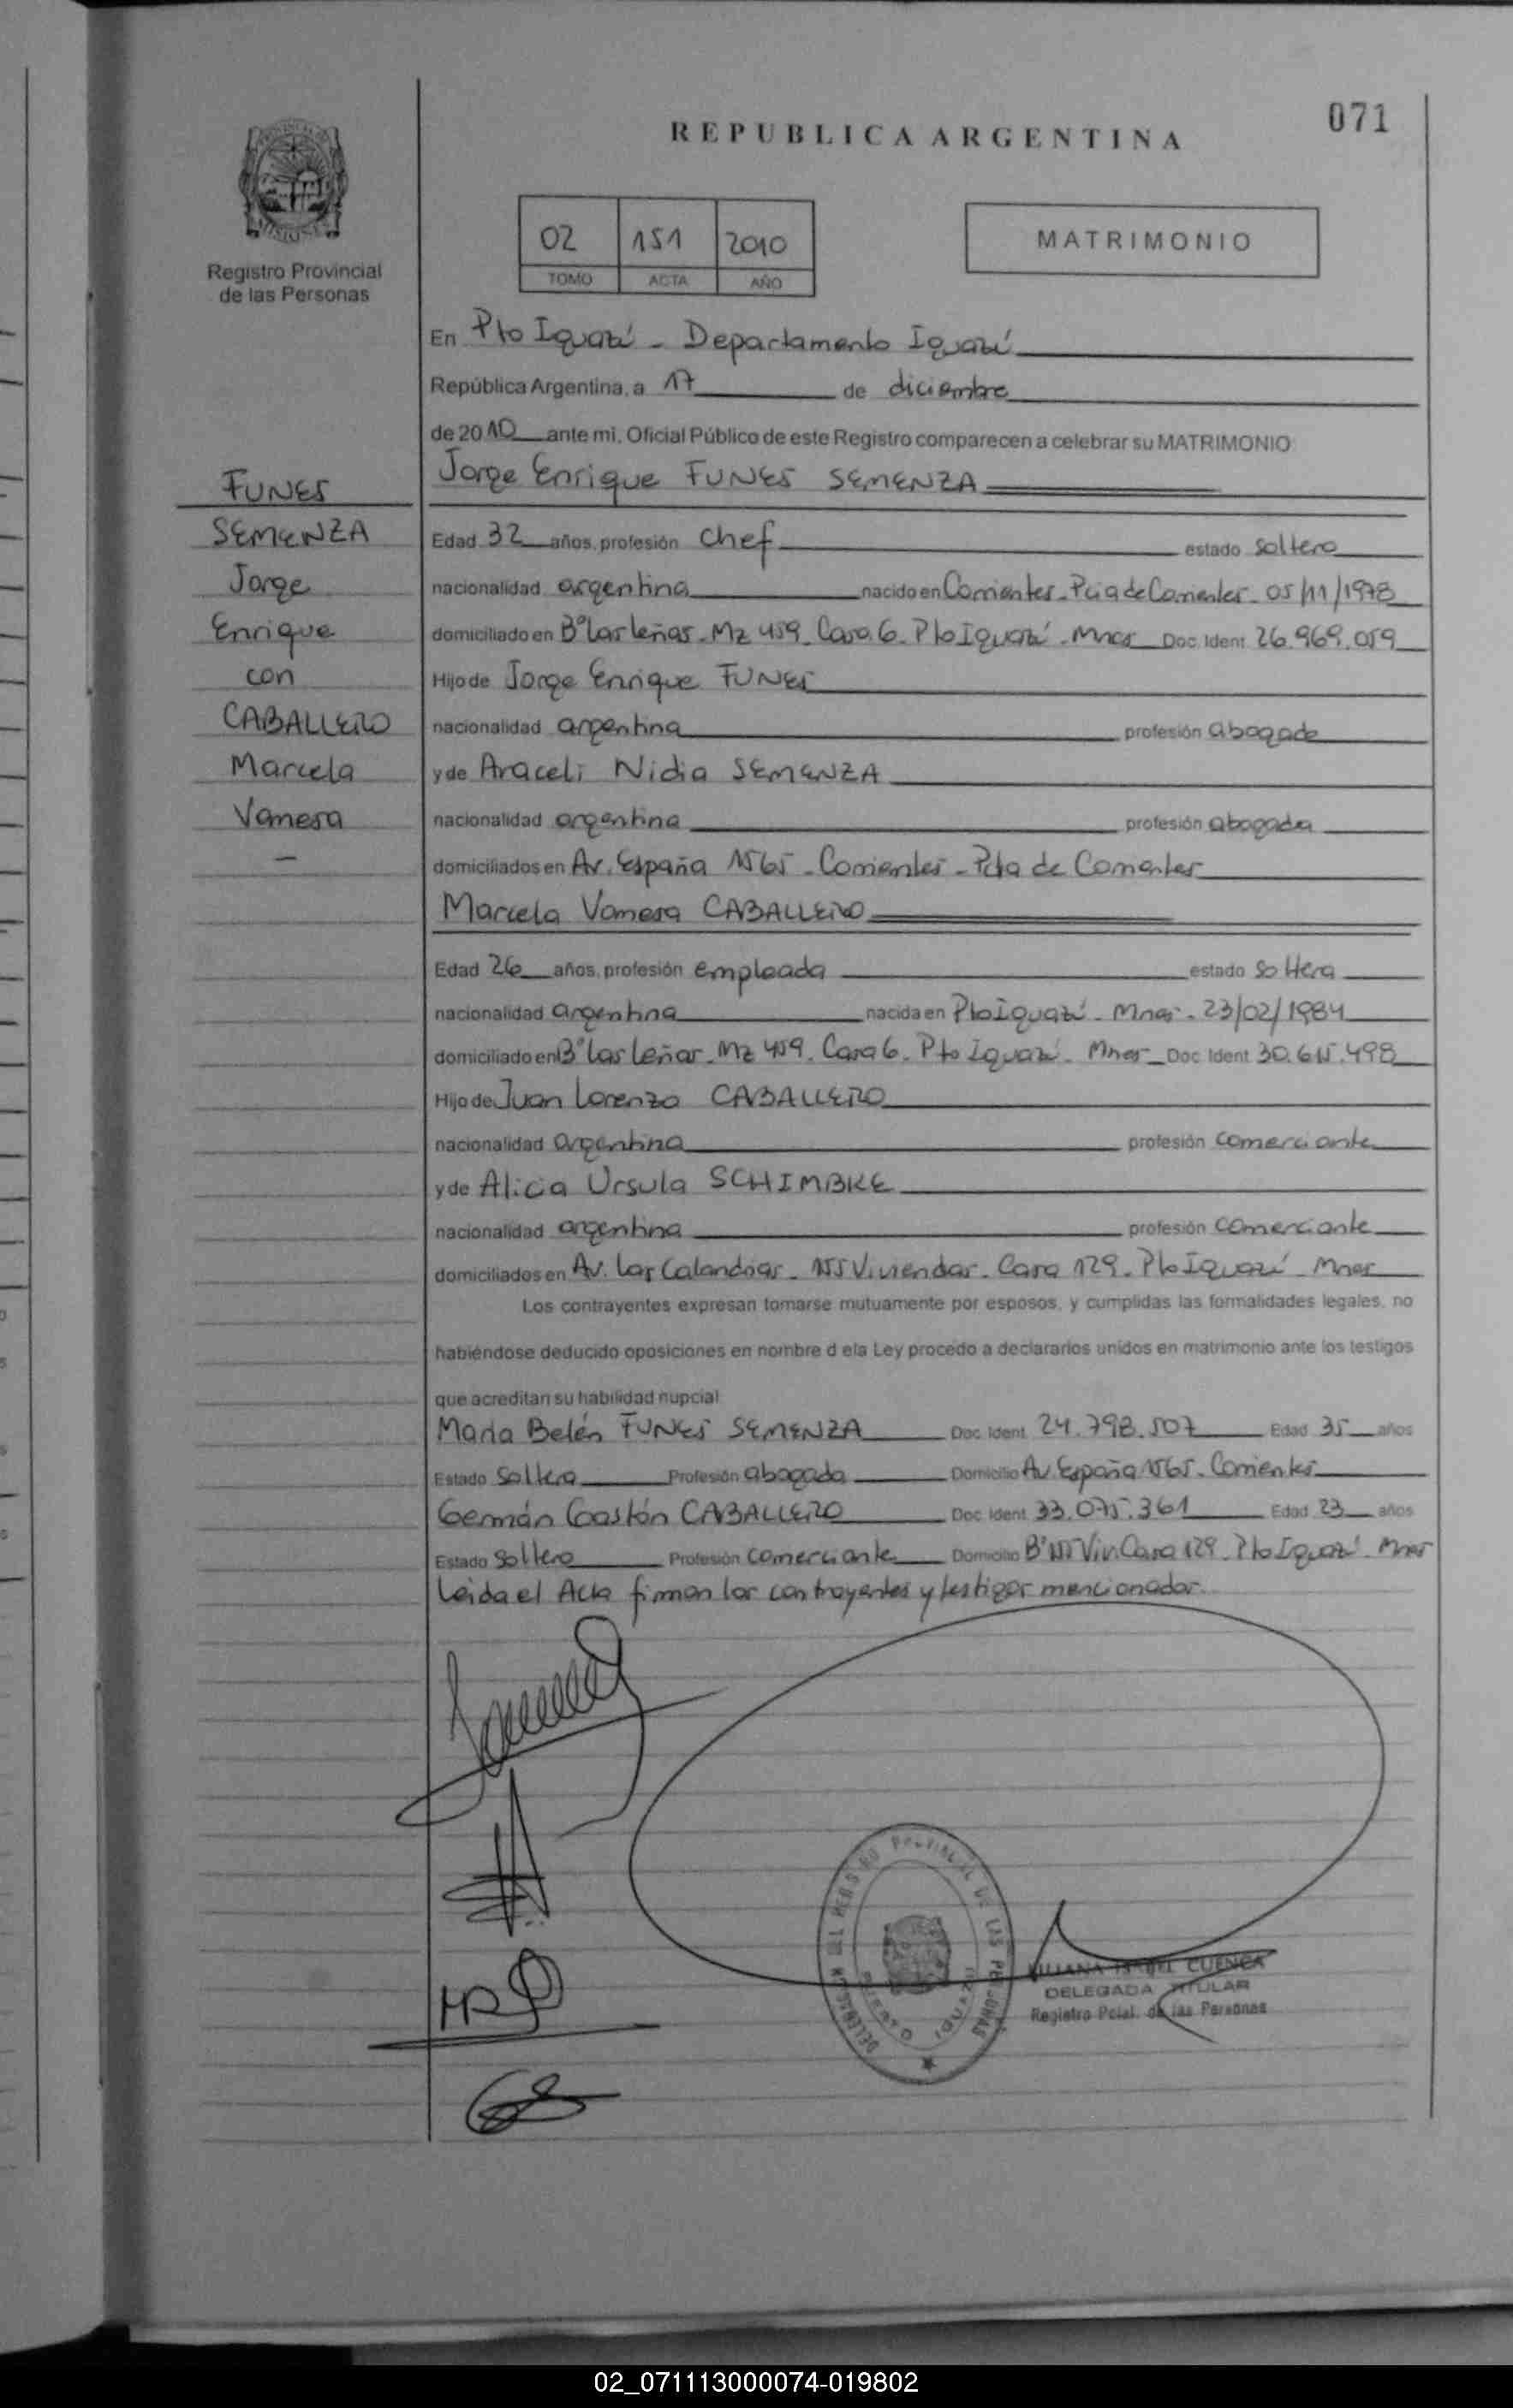 071
REPUBLICA ARGENTINA
02 151 2010
TOMO ACTA AÑO
MATRIMONIO
Registro Provincial
de las Personas
En Pto Iguazú - Departamento Iguazú
República Argentina, a 17 de diciembre
de 2010 ante mi, Oficial Público de este Registro comparecen a celebrar su MATRIMONIO
FUNES
SEMENZA
Jorge
Enrique
con
CABALLERO
Marcela
Vanesa
-
Jorge Enrique FUNES SEMENZA
Edad 32 años, profesión Chef estado soltero
nacionalidad argentina nacido en Corrientes - Pcia de Corrientes - 05/11/1978
domiciliado en Bº Las Leñas - Mz 459 - Casa 6 - Pto Iguazú - Mnes Doc. Ident. 26.969.059
Hijo de Jorge Enrique FUNES
nacionalidad argentina profesión abogado
y de Araceli Nidia SEMENZA
nacionalidad argentina profesión abogada
domiciliados en Av. España 1565 - Corrientes - Pcia de Corrientes
Marcela Vanesa CABALLERO
Edad 26 años, profesión empleada estado soltera
nacionalidad argentina nacida en Pto Iguazú - Mnes - 23/02/1984
domiciliado en Bº Las Leñas - Mz 459 - Casa 6 - Pto Iguazú - Mnes Doc. Ident. 30.615.498
Hija de Juan Lorenzo CABALLERO
nacionalidad argentina profesión comerciante
y de Alicia Ursula SCHIMBKE
nacionalidad argentina profesión comerciante
domiciliados en Av. Las Calandrias - 155 Viviendas - Casa 129 - Pto Iguazú - Mnes
Los contrayentes expresan tomarse mutuamente por esposos, y cumplidas las formalidades legales, no
habiéndose deducido oposiciones en nombre d ela Ley procedo a declararlos unidos en matrimonio ante los testigos
que acreditan su habilidad nupcial
María Belén FUNES SEMENZA Doc. Ident. 24.798.507 Edad 35 años
Estado Soltera Profesión abogada Domicilio Av. España 1565 - Corrientes
Germán Gastón CABALLERO Doc. Ident. 33.075.361 Edad 23 años
Estado Soltero Profesión comerciante Domicilio Bº 155 Viv. Casa 129 - Pto Iguazú - Mnes
Leida el Acta firman los contrayentes y testigos mencionados.
DELEGACION DEL REGISTRO PROVINCIAL DE LAS PERSONAS
PUERTO IGUAZU
LILIANA ISABEL CUENCA
DELEGADA TITULAR
Registro Pcial. de las Personas
02_071113000074-019802